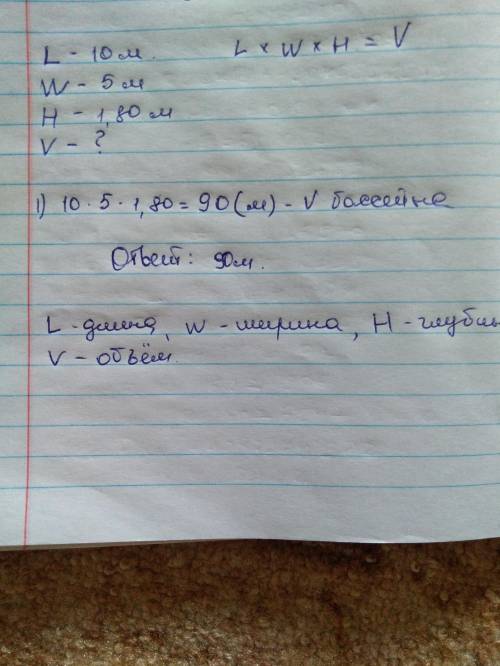 L - 10 м.     L × W × H = V
W - 5 м
H - 1,80 м
V - ?
1) 10 · 5 · 1,80 = 90 (м) - V бассейна
Ответ: 90м.
L - длина, W - ширина, H - глубин
V - объём.